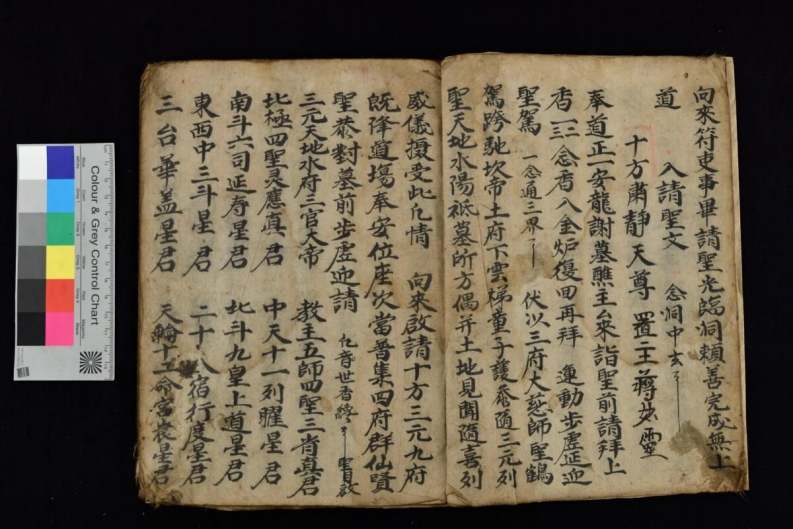 向來符吏事畢請聖光臨洞賴善完成無上
道 入請聖文 念洞中玄
十方肅靜天尊 置主蔣 靈
奉道正一安龍謝墓醮主來詣聖前請拜上
香 二念香入金炉復回再拜 運動步虛延迎
聖駕 一念通三界 伏以三府大慈師聖鶴
駕跨馳坎帝土府下雲梯童子護 隨三元列
聖天地水陽祗墓所方偶并土地見聞隨喜列
威儀摄受此乞情 向來啟請十方三元九府
既降道場奉安位座次當普集四府群仙賢
聖恭對墓前步虛迎請 乞音世香
三元天地水府三官大帝 教主五師四聖三省真君
北極四聖灵應真君 中天十一列曜星君
南斗六司延寿星君 北斗九皇上道星君
東西中三斗星君 二十八宿行度星君
三台華盖星君 天輪十二命宮 星君
Colour & Grey Control Chart